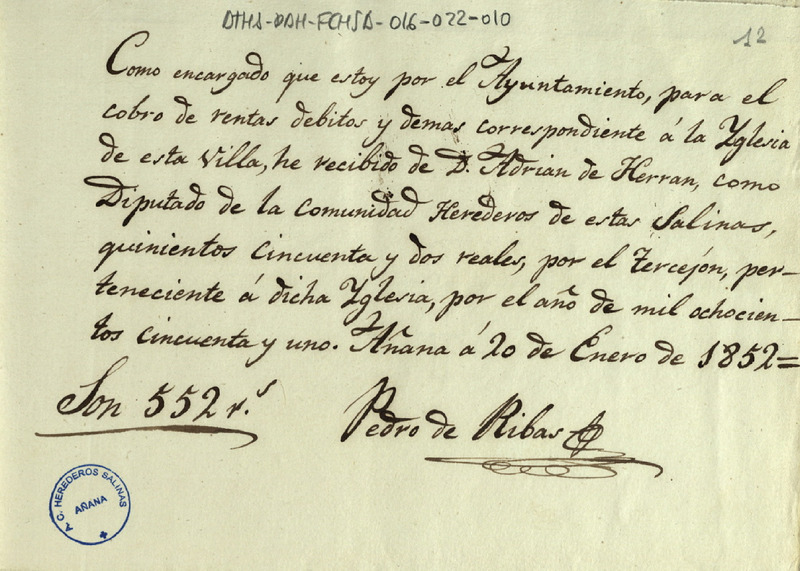 ATHA-DAH-FCHSA-016-022-010
12
Como encargado que estoy por el Ayuntamiento, para el
cobro de rentas debitos y demas correspondiente á la Yglesia
de esta Villa, he recibido de D. Adrian de Herran, como
Diputado de la Comunidad Herederos de estas Salinas,
quinientos cincuenta y dos reales, por el tercejón, per-
teneciente á dicha Yglesia, por el año de mil ochocien-
tos cincuenta y uno. Añana á 20 de Enero de 1852=
Son 552 r.s
Pedro de Ribas
A.C. HEREDEROS SALINAS
AÑANA